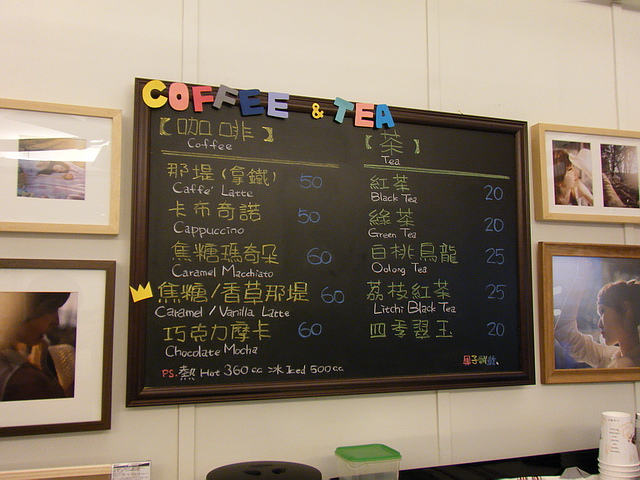 COFFEE & TEA
【咖啡】
Coffee
那堤(拿鐵) 50
Caffe' Latte
卡布奇諾 50
Cappuccino
焦糖瑪奇朵 60
Caramel Macchiato
焦糖/香草那堤 60
Caramel/Vanilla Latte
巧克力摩卡 60
Chocolate Mocha
PS.熱 Hot 360cc 冰 Iced 500cc
【茶】
Tea
紅茶 20
Black Tea
綠茶 20
Green Tea
白桃烏龍 25
Oolong Tea
荔枝紅茶 25
Litchi Black Tea
四季翠玉 20